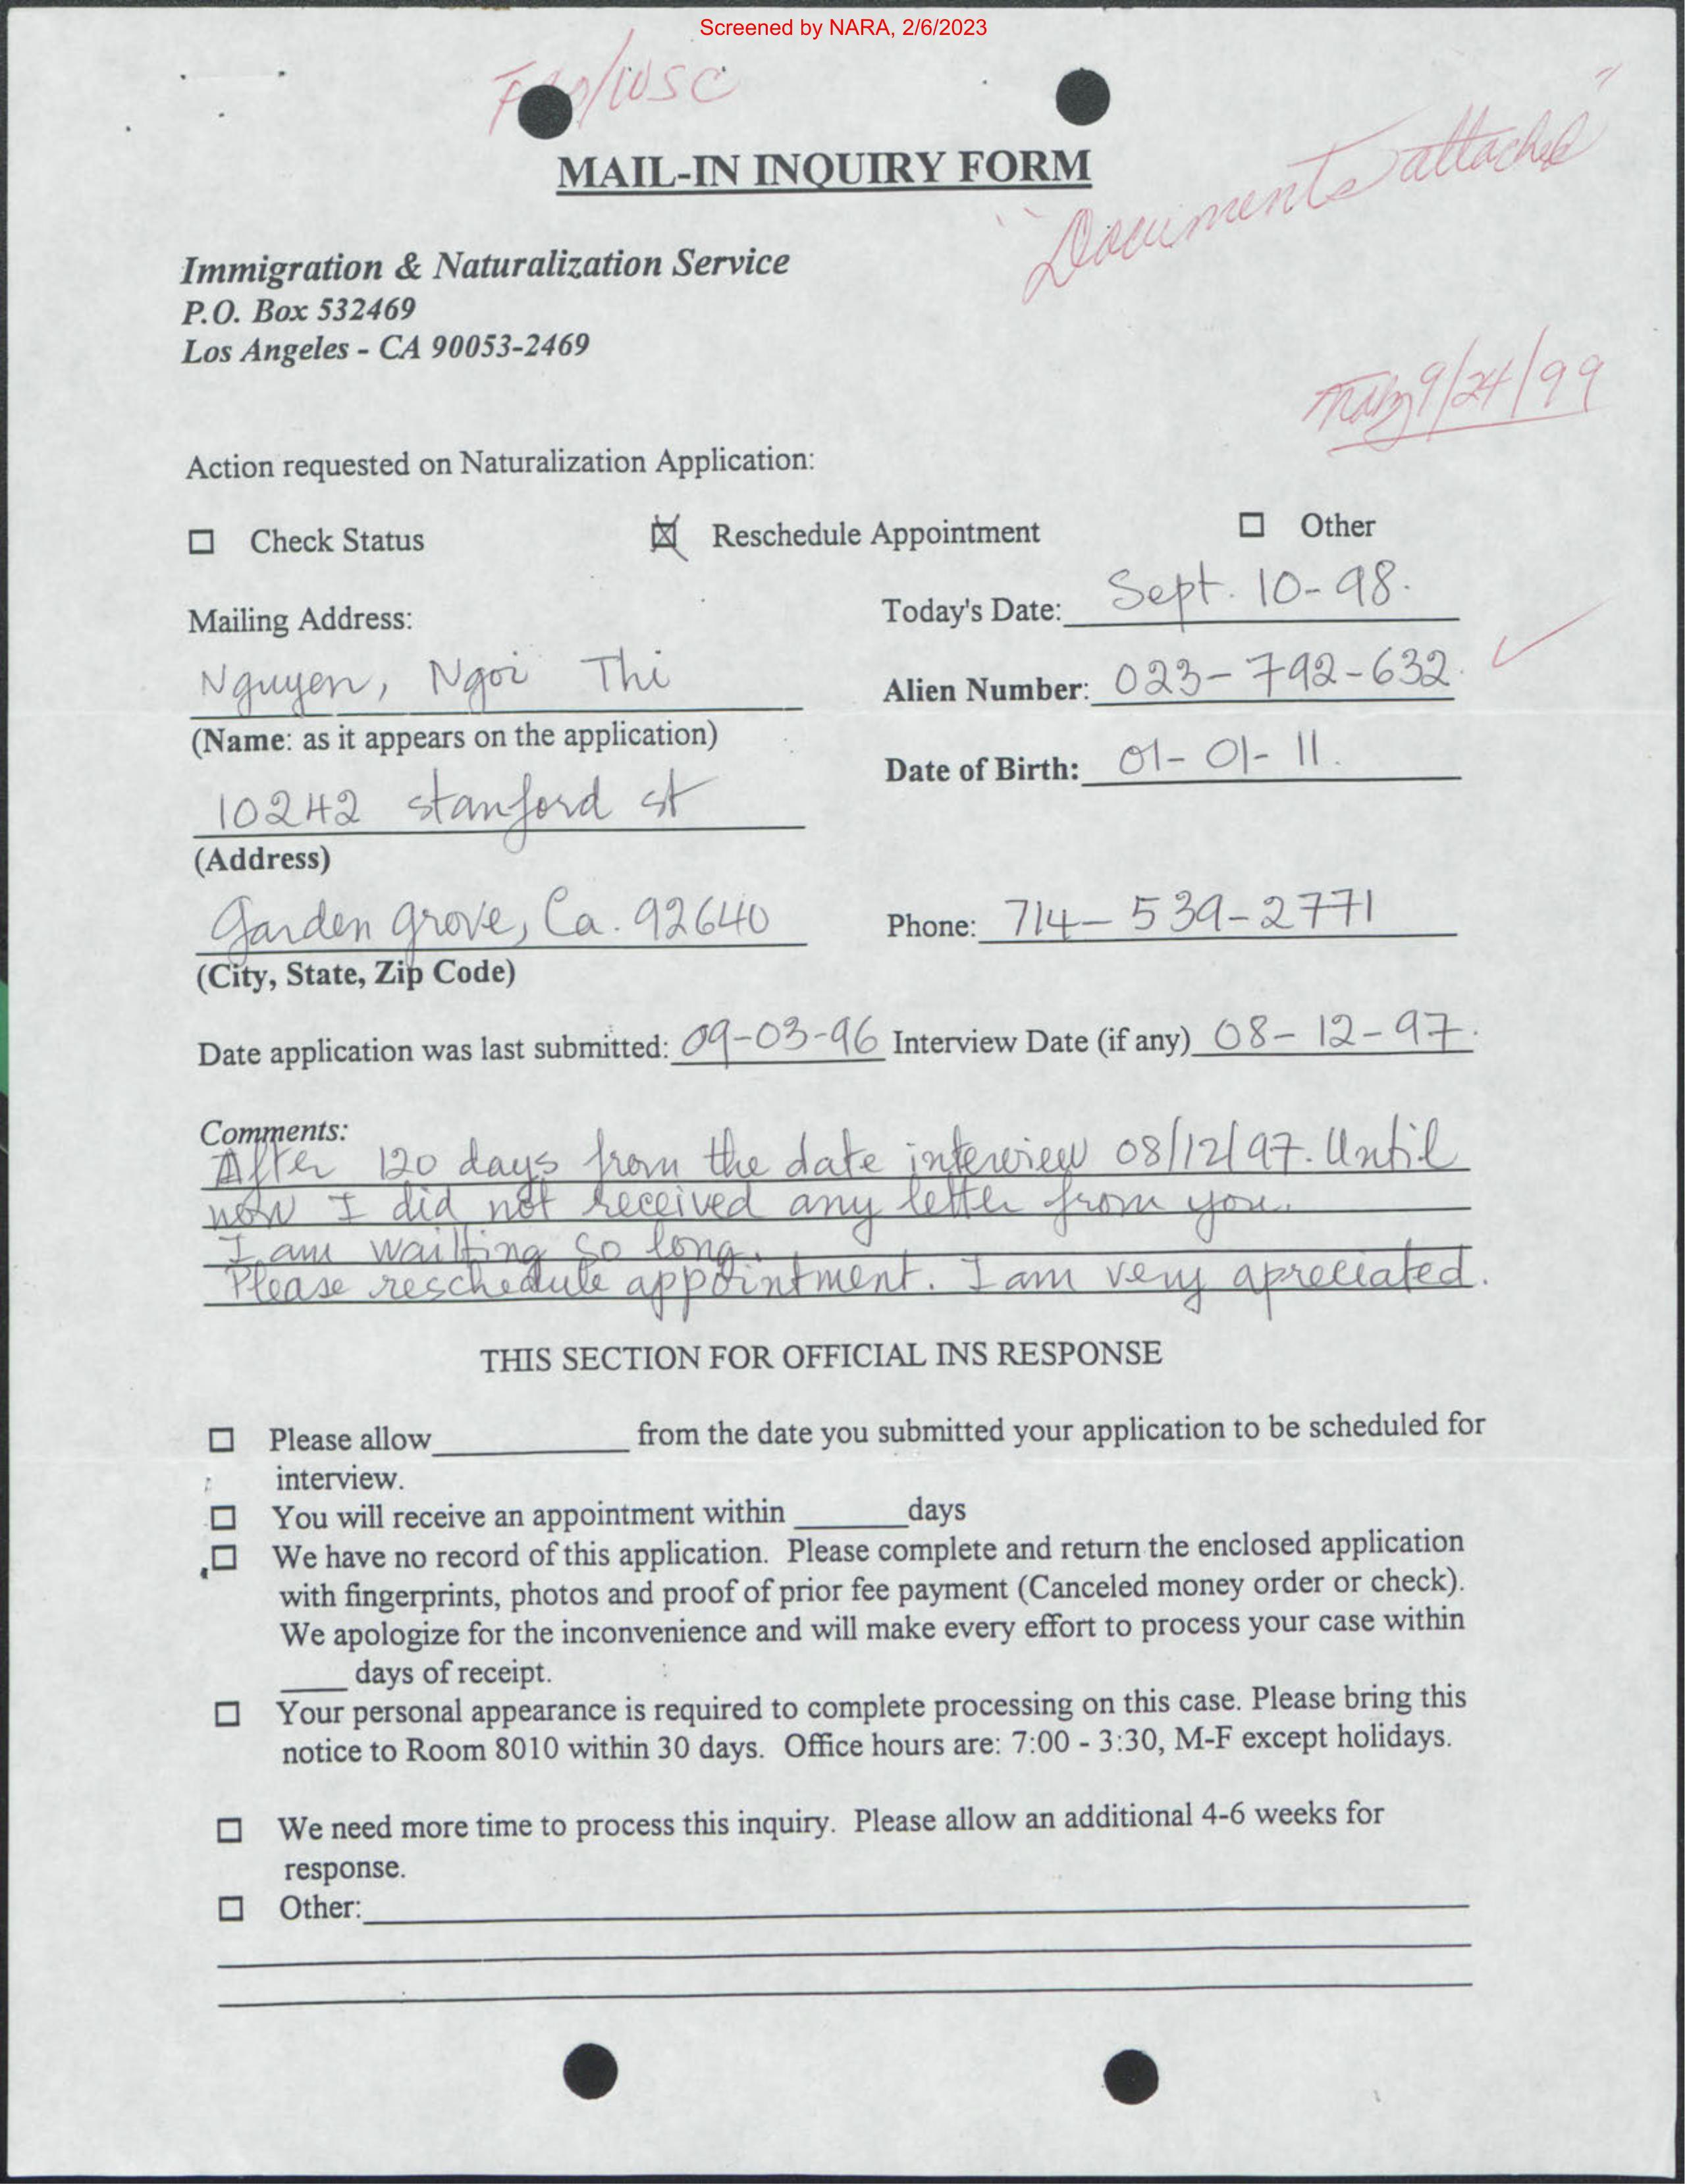 Screened by NARA, 2/6/2023
/WSC
MAIL-IN INQUIRY FORM
"Documents attached"
Immigration & Naturalization Service
P.O. Box 532469
Los Angeles - CA 90053-2469
9/24/99
Action requested on Naturalization Application:
☐ Check Status ☒ Reschedule Appointment ☐ Other
Today's Date: Sept. 10-98.
Mailing Address:
Nguyen, Ngoi Thi
Alien Number: 023-792-632. ✓
(Name: as it appears on the application)
Date of Birth: 01-01-11.
10242 stanford st
(Address)
Garden grove, Ca. 92640
Phone: 714-539-2771
(City, State, Zip Code)
Date application was last submitted: 09-03-96 Interview Date (if any) 08-12-97.
Comments:
After 120 days from the date interview 08/12/97. Until
now I did not received any letter from you.
I am waitting so long.
Please reschedule appointment. I am very apreciated.
THIS SECTION FOR OFFICIAL INS RESPONSE
☐ Please allow____ from the date you submitted your application to be scheduled for
interview.
☐ You will receive an appointment within ____days
☐ We have no record of this application. Please complete and return the enclosed application
with fingerprints, photos and proof of prior fee payment (Canceled money order or check).
We apologize for the inconvenience and will make every effort to process your case within
____ days of receipt.
☐ Your personal appearance is required to complete processing on this case. Please bring this
notice to Room 8010 within 30 days. Office hours are: 7:00 - 3:30, M-F except holidays.
☐ We need more time to process this inquiry. Please allow an additional 4-6 weeks for
response.
☐ Other:____